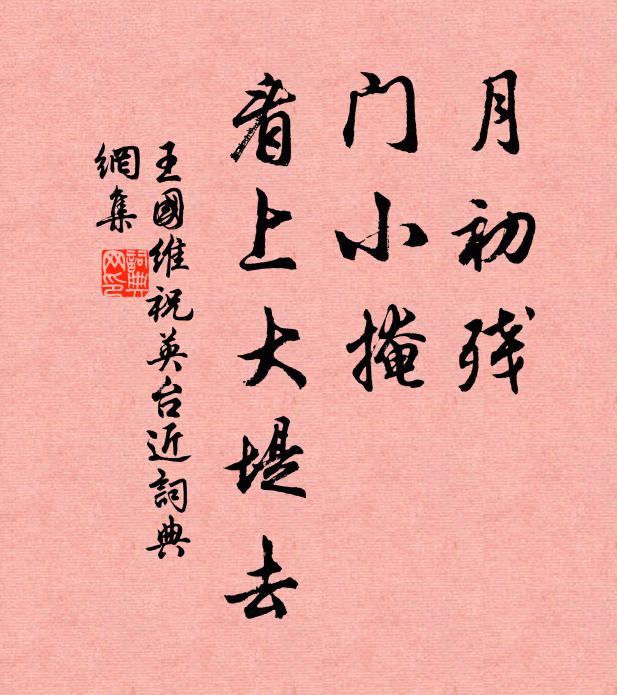 月初残
门小掩
看上大堤去
王國维祝英台近詞典
網集
詞典
网印